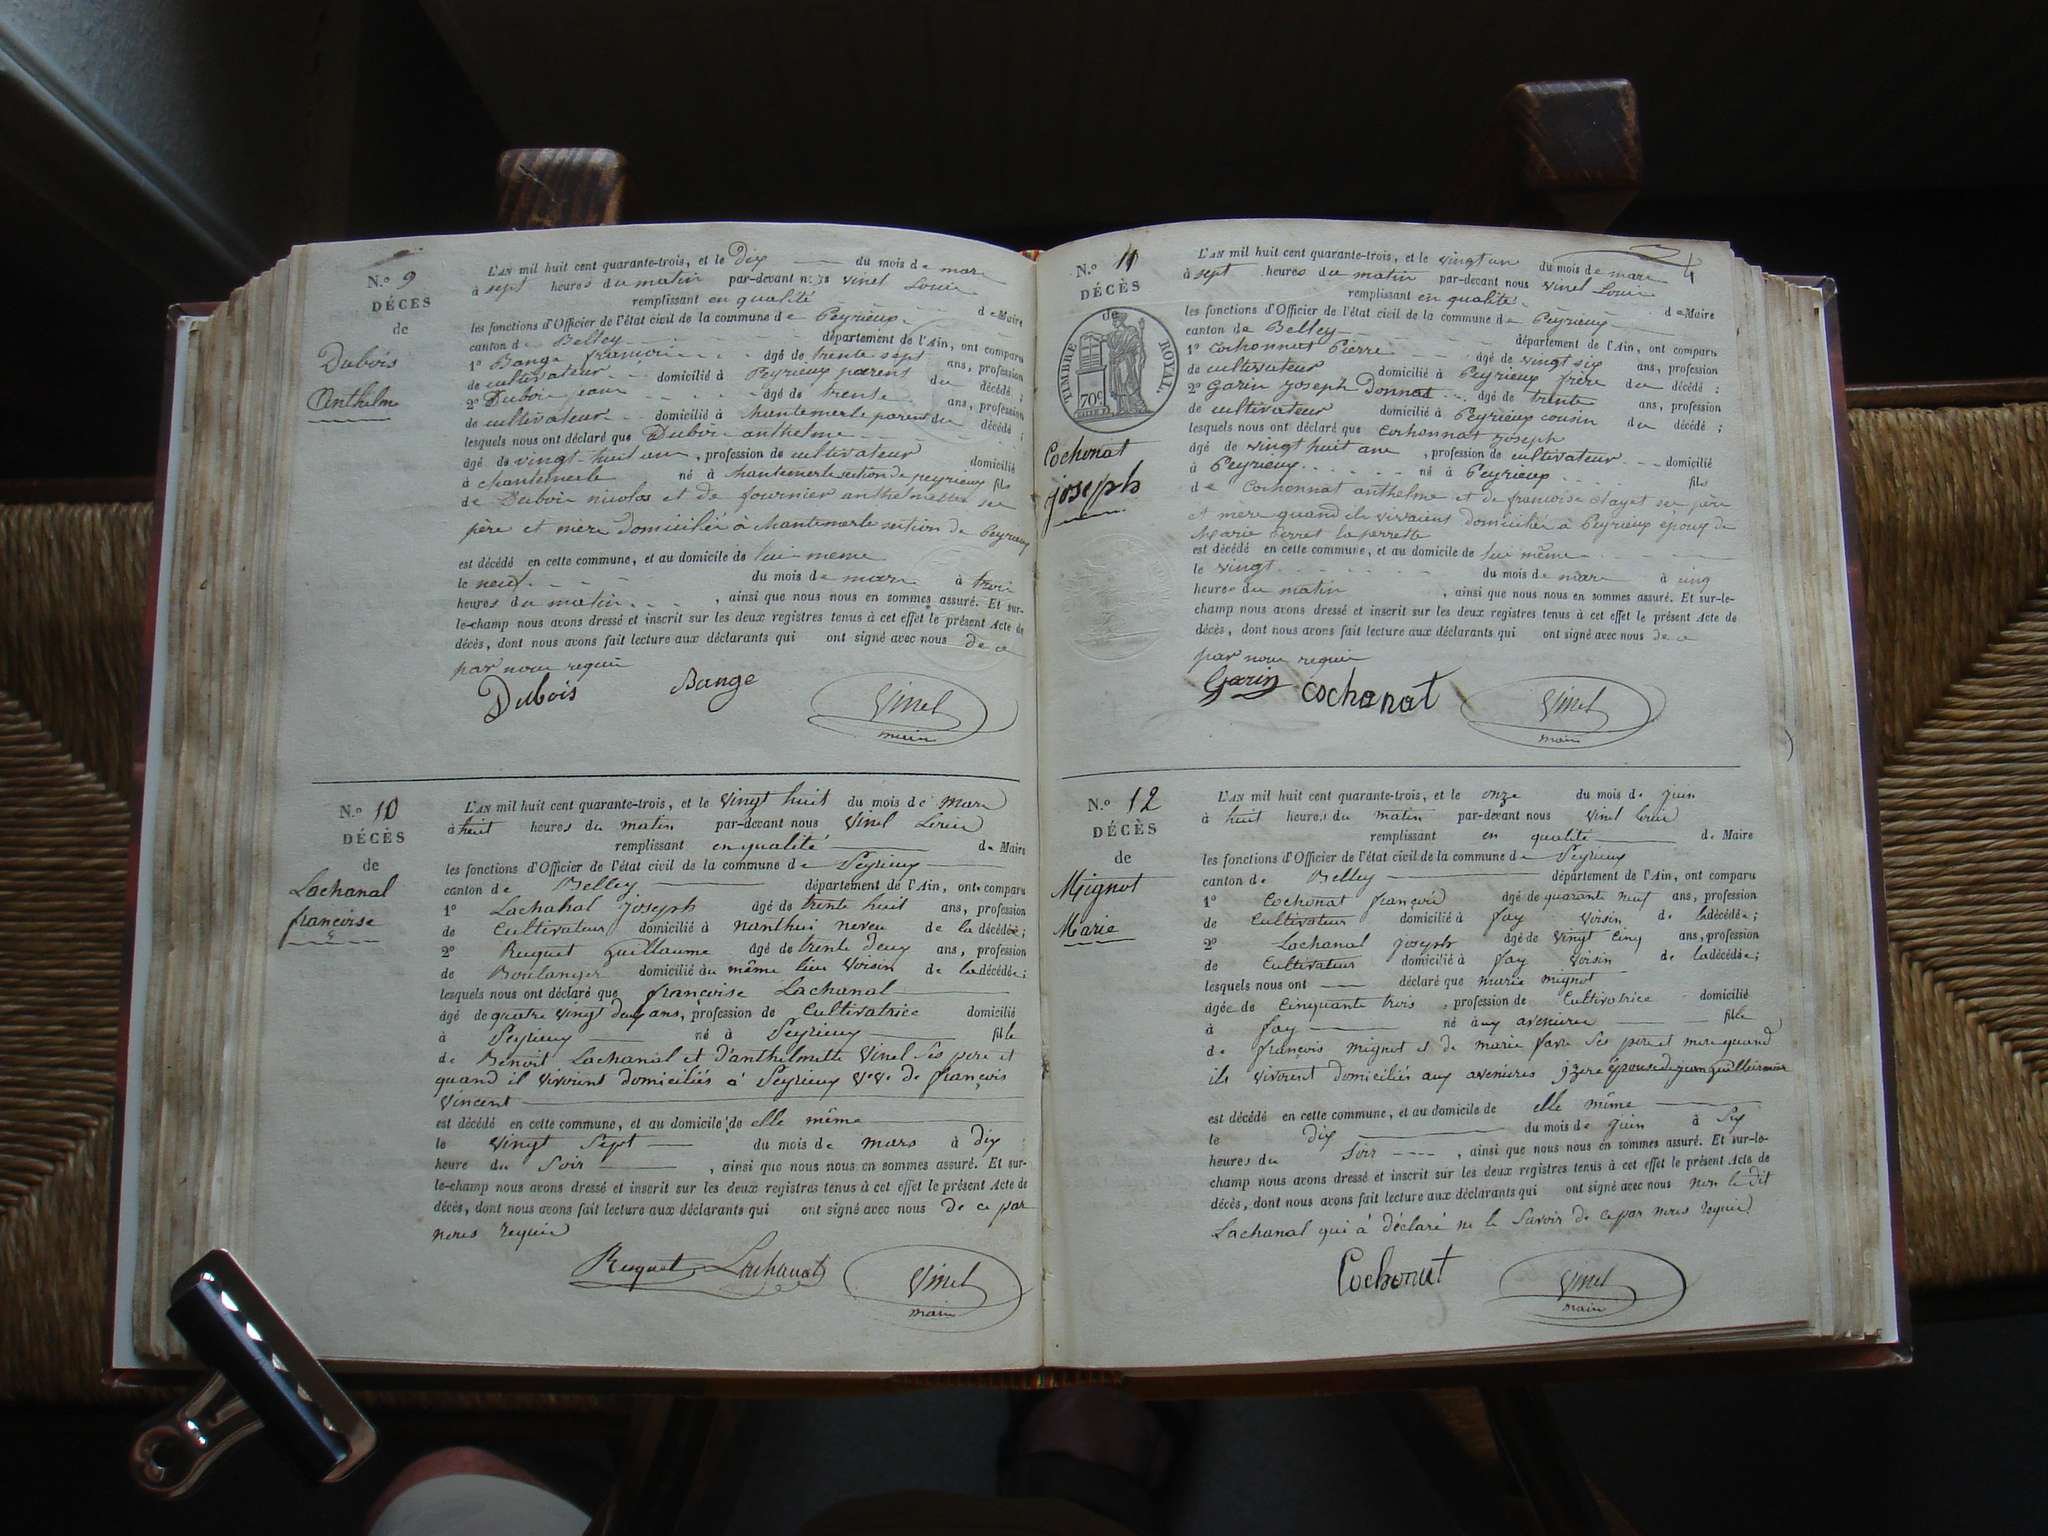 N.º 9
DÉCÈS
de
Dubois
Anthelme
L'AN mil huit cent quarante-trois, et le Dix du mois de mars
à sept heures du matin par-devant nous Vinel Louis
remplissant en qualité de Maire
les fonctions d'Officier de l'état civil de la commune de Peyrieux
canton de Belley département de l'Ain, ont comparu
1º Bange françois âgé de trente sept ans, profession
de cultivateur domicilié à Peyrieux parent du décédé ;
2º Dubois jean âgé de trente ans, profession
de cultivateur domicilié à Chantemerle parent du décédé ;
lesquels nous ont déclaré que Dubois anthelme
âgé de vingt-huit ans, profession de cultivateur domicilié
à Chantemerle né à Chantemerle section de peyrieux fils
de Dubois nicolas et de fournier anthelmette ses
père et mere domiciliés à Chantemerle section de Peyrieux
est décédé en cette commune, et au domicile de lui-meme
le neuf du mois de mars à trois
heures du matin, ainsi que nous nous en sommes assuré. Et sur-
le-champ nous avons dressé et inscrit sur les deux registres tenus à cet effet le présent Acte de
décès, dont nous avons fait lecture aux déclarants qui ont signé avec nous de ce
par nous requis
Dubois Bange Vinel
maire
N.º 10
DÉCÈS
de
Lachanal
françoise
L'AN mil huit cent quarante-trois, et le vingt huit du mois de mars
à huit heures du matin par-devant nous Vinel Louis
remplissant en qualité de Maire
les fonctions d'Officier de l'état civil de la commune de Peyrieux
canton de Belley département de l'Ain, ont comparu
1º Lachanal Joseph âgé de trente huit ans, profession
de Cultivateur domicilié à nanthui neveu de la décédée ;
2º Ruguet Guillaume âgé de trente deux ans, profession
de Boulanger domicilié au même lieu Voisin de la décédée ;
lesquels nous ont déclaré que françoise Lachanal
âgé de quatre vingt deux ans, profession de Cultivatrice domicilié
à Peyrieux né à Peyrieux fille
de Benoit Lachanal et d'anthelmette Vinel ses pere et
quand il vivoient domiciliés à Peyrieux Vve. de françois
Vincent
est décédé en cette commune, et au domicile de elle même
le vingt sept du mois de mars à dix
heure du soir, ainsi que nous nous en sommes assuré. Et sur-
le-champ nous avons dressé et inscrit sur les deux registres tenus à cet effet le présent Acte de
décès, dont nous avons fait lecture aux déclarants qui ont signé avec nous de ce par
nous requis
Ruguet Lachanal Vinel
maire
N.º 11
DÉCÈS
de
TIMBRE ROYAL.
70c
Cochonat
joseph
4
L'AN mil huit cent quarante-trois, et le vingt un du mois de mars
à sept heures du matin par-devant nous Vinel Louis
remplissant en qualité de Maire
les fonctions d'Officier de l'état civil de la commune de Peyrieux
canton de Belley département de l'Ain, ont comparu
1º Cochonnat Pierre âgé de vingt six ans, profession
de cultivateur domicilié à Peyrieux frère du décédé ;
2º Garin Joseph Donnat âgé de trente ans, profession
de cultivateur domicilié à Peyrieux cousin du décédé ;
lesquels nous ont déclaré que Cochonnat Joseph
âgé de vingt huit ans, profession de cultivateur domicilié
à Peyrieux né à Peyrieux fils
de Cochonnat anthelme et de francoise ses père
et mere quand ils vivaient domiciliés à Peyrieux époux de
Marie
est décédé en cette commune, et au domicile de lui même
le vingt du mois de mars à cinq
heures du matin, ainsi que nous nous en sommes assuré. Et sur-le-
champ nous avons dressé et inscrit sur les deux registres tenus à cet effet le présent Acte de
décès, dont nous avons fait lecture aux déclarants qui ont signé avec nous de ce
par nous requis
Garin Cochanat Vinel
maire
N.º 12
DÉCÈS
de
Mignot
Marie
L'AN mil huit cent quarante-trois, et le onze du mois de juin
à huit heures du matin par-devant nous Vinel Louis
remplissant en qualité de Maire
les fonctions d'Officier de l'état civil de la commune de Peyrieux
canton de Belley département de l'Ain, ont comparu
1º Cochonat françois âgé de quarante neuf ans, profession
de Cultivateur domicilié à fay voisin de la décédée ;
2º Lachanal Joseph âgé de vingt cinq ans, profession
de Cultivateur domicilié à fay voisin de la décédée ;
lesquels nous ont déclaré que marie mignot
âgée de Cinquante trois, profession de Cultivatrice domicilié
à fay né aux avenieres fille
de françois mignot et de marie favre ses pere et mere quand
ils vivoient domiciliés aux avenieres épouse de jean
est décédé en cette commune, et au domicile de elle même
le dix du mois de juin à six
heures du soir, ainsi que nous nous en sommes assuré. Et sur-le-
champ nous avons dressé et inscrit sur les deux registres tenus à cet effet le présent Acte de
décès, dont nous avons fait lecture aux déclarants qui ont signé avec nous non le dit
Lachanal qui à déclaré ne le savoir de ce par nous requis
Cochonat Vinel
maire